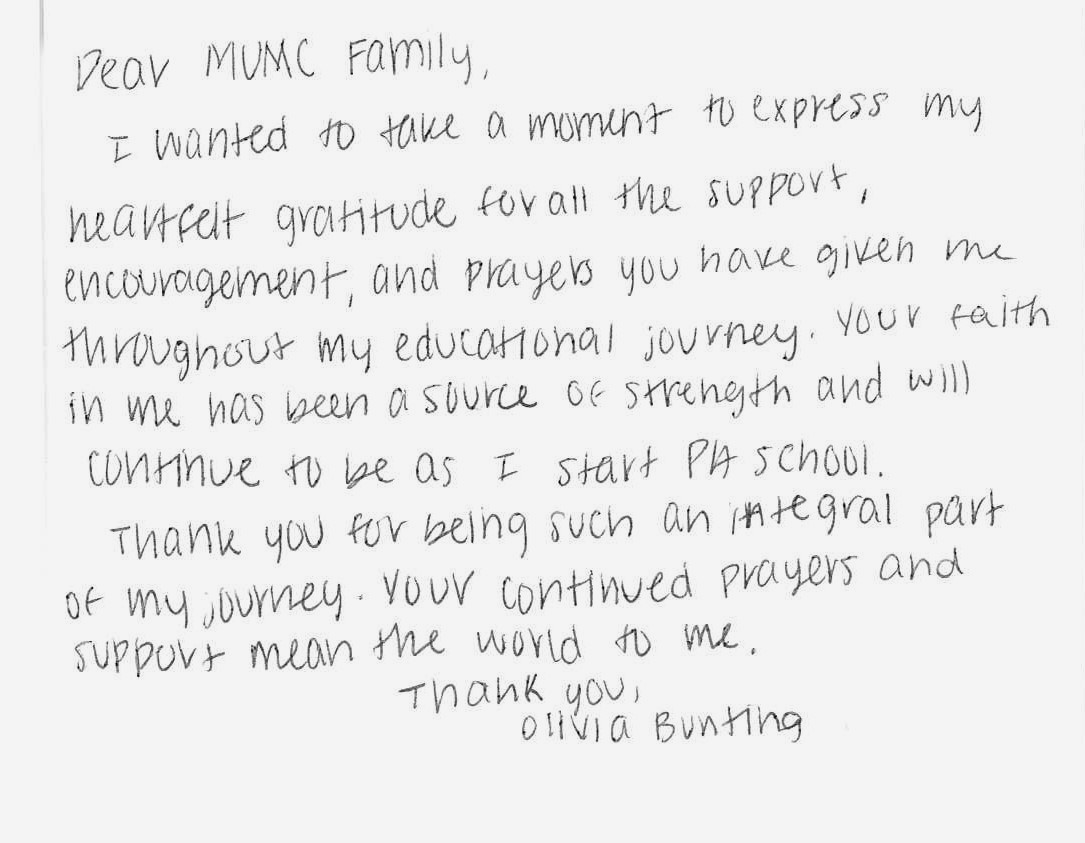 Dear MUMC Family,
I wanted to take a moment to express my
heartfelt gratitude for all the support,
encouragement, and prayers you have given me
throughout my educational journey. Your faith
in me has been a source of strength and will
continue to be as I start PA school.
Thank you for being such an integral part
of my journey. Your continued prayers and
support mean the world to me.
Thank you,
Olivia Bunting